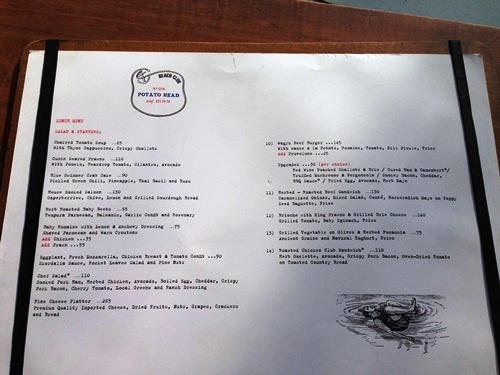 BEACH CLUB
POTATO HEAD
LUNCH MENU
SALAD & STARTERS:
Charred Tomato Soup ..65
With Thyme Cappuccino, Crispy Shallots
Cumin Seared Prawns ..110
With Pomelo, Teardrop Tomato, Cilantro, Avocado
Blue Swimmer Crab Cake ..90
Pickled Green Chili, Pineapple, Thai Basil and Yuzu
House Smoked Salmon ..130
Caperberries, Chive, Lemon and Grilled Sourdough Bread
Herb Roasted Baby Beets ..65
Tempura Parmesan, Balsamic, Garlic Confit and Rosemary
Baby Romaine with Lemon & Anchovy Dressing ..75
Shaved Parmesan and Warm Croutons
Add Chicken ..35
Add Prawn ..55
Eggplant, Fresh Mozzarella, Chicken Breast & Tomato Confit ..90
Salsa Verde, Rocket Leaves Salad and Pine Nuts
Chef Salad* ..110
Smoked Pork Ham, Herbed Chicken, Avocado, Boiled Egg, Cheddar, Crispy
Pork Bacon, Cherry Tomato, Local Greens and Ranch Dressing
Fine Cheese Platter ..265
Premium Quality Imported Cheese, Dried Fruits, Nuts, Grapes, Crackers
and Bread
10) Wagyu Beef Burger ...165
With sauce a la Potato, Romaine, Tomato, Dill Pickle, Fries
Add Provolone ..25
Upgrades ..30 (per choice)
11) Herbed - Roasted Beef Sandwich ..130
Caramelized Onion, Mixed Salad, Comté, Horseradish Mayo on Foggy
Seed Baguette, Fries
12) Brioche with King Prawns & Grilled Brie Cheese ..160
Grilled Tomato, Baby Spinach, Fries
13) Grilled Vegetable on Olives & Herbed Focaccia ..75
Ancient Grains and Natural Yoghurt, Fries
14) Roasted Chicken Club Sandwich* ..110
Herb Omelette, Avocado, Crispy Pork Bacon, Oven-Dried Tomato
on Toasted Country Bread